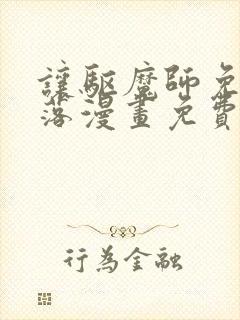 讓驅魔師免
落漫畫免費
行為金融